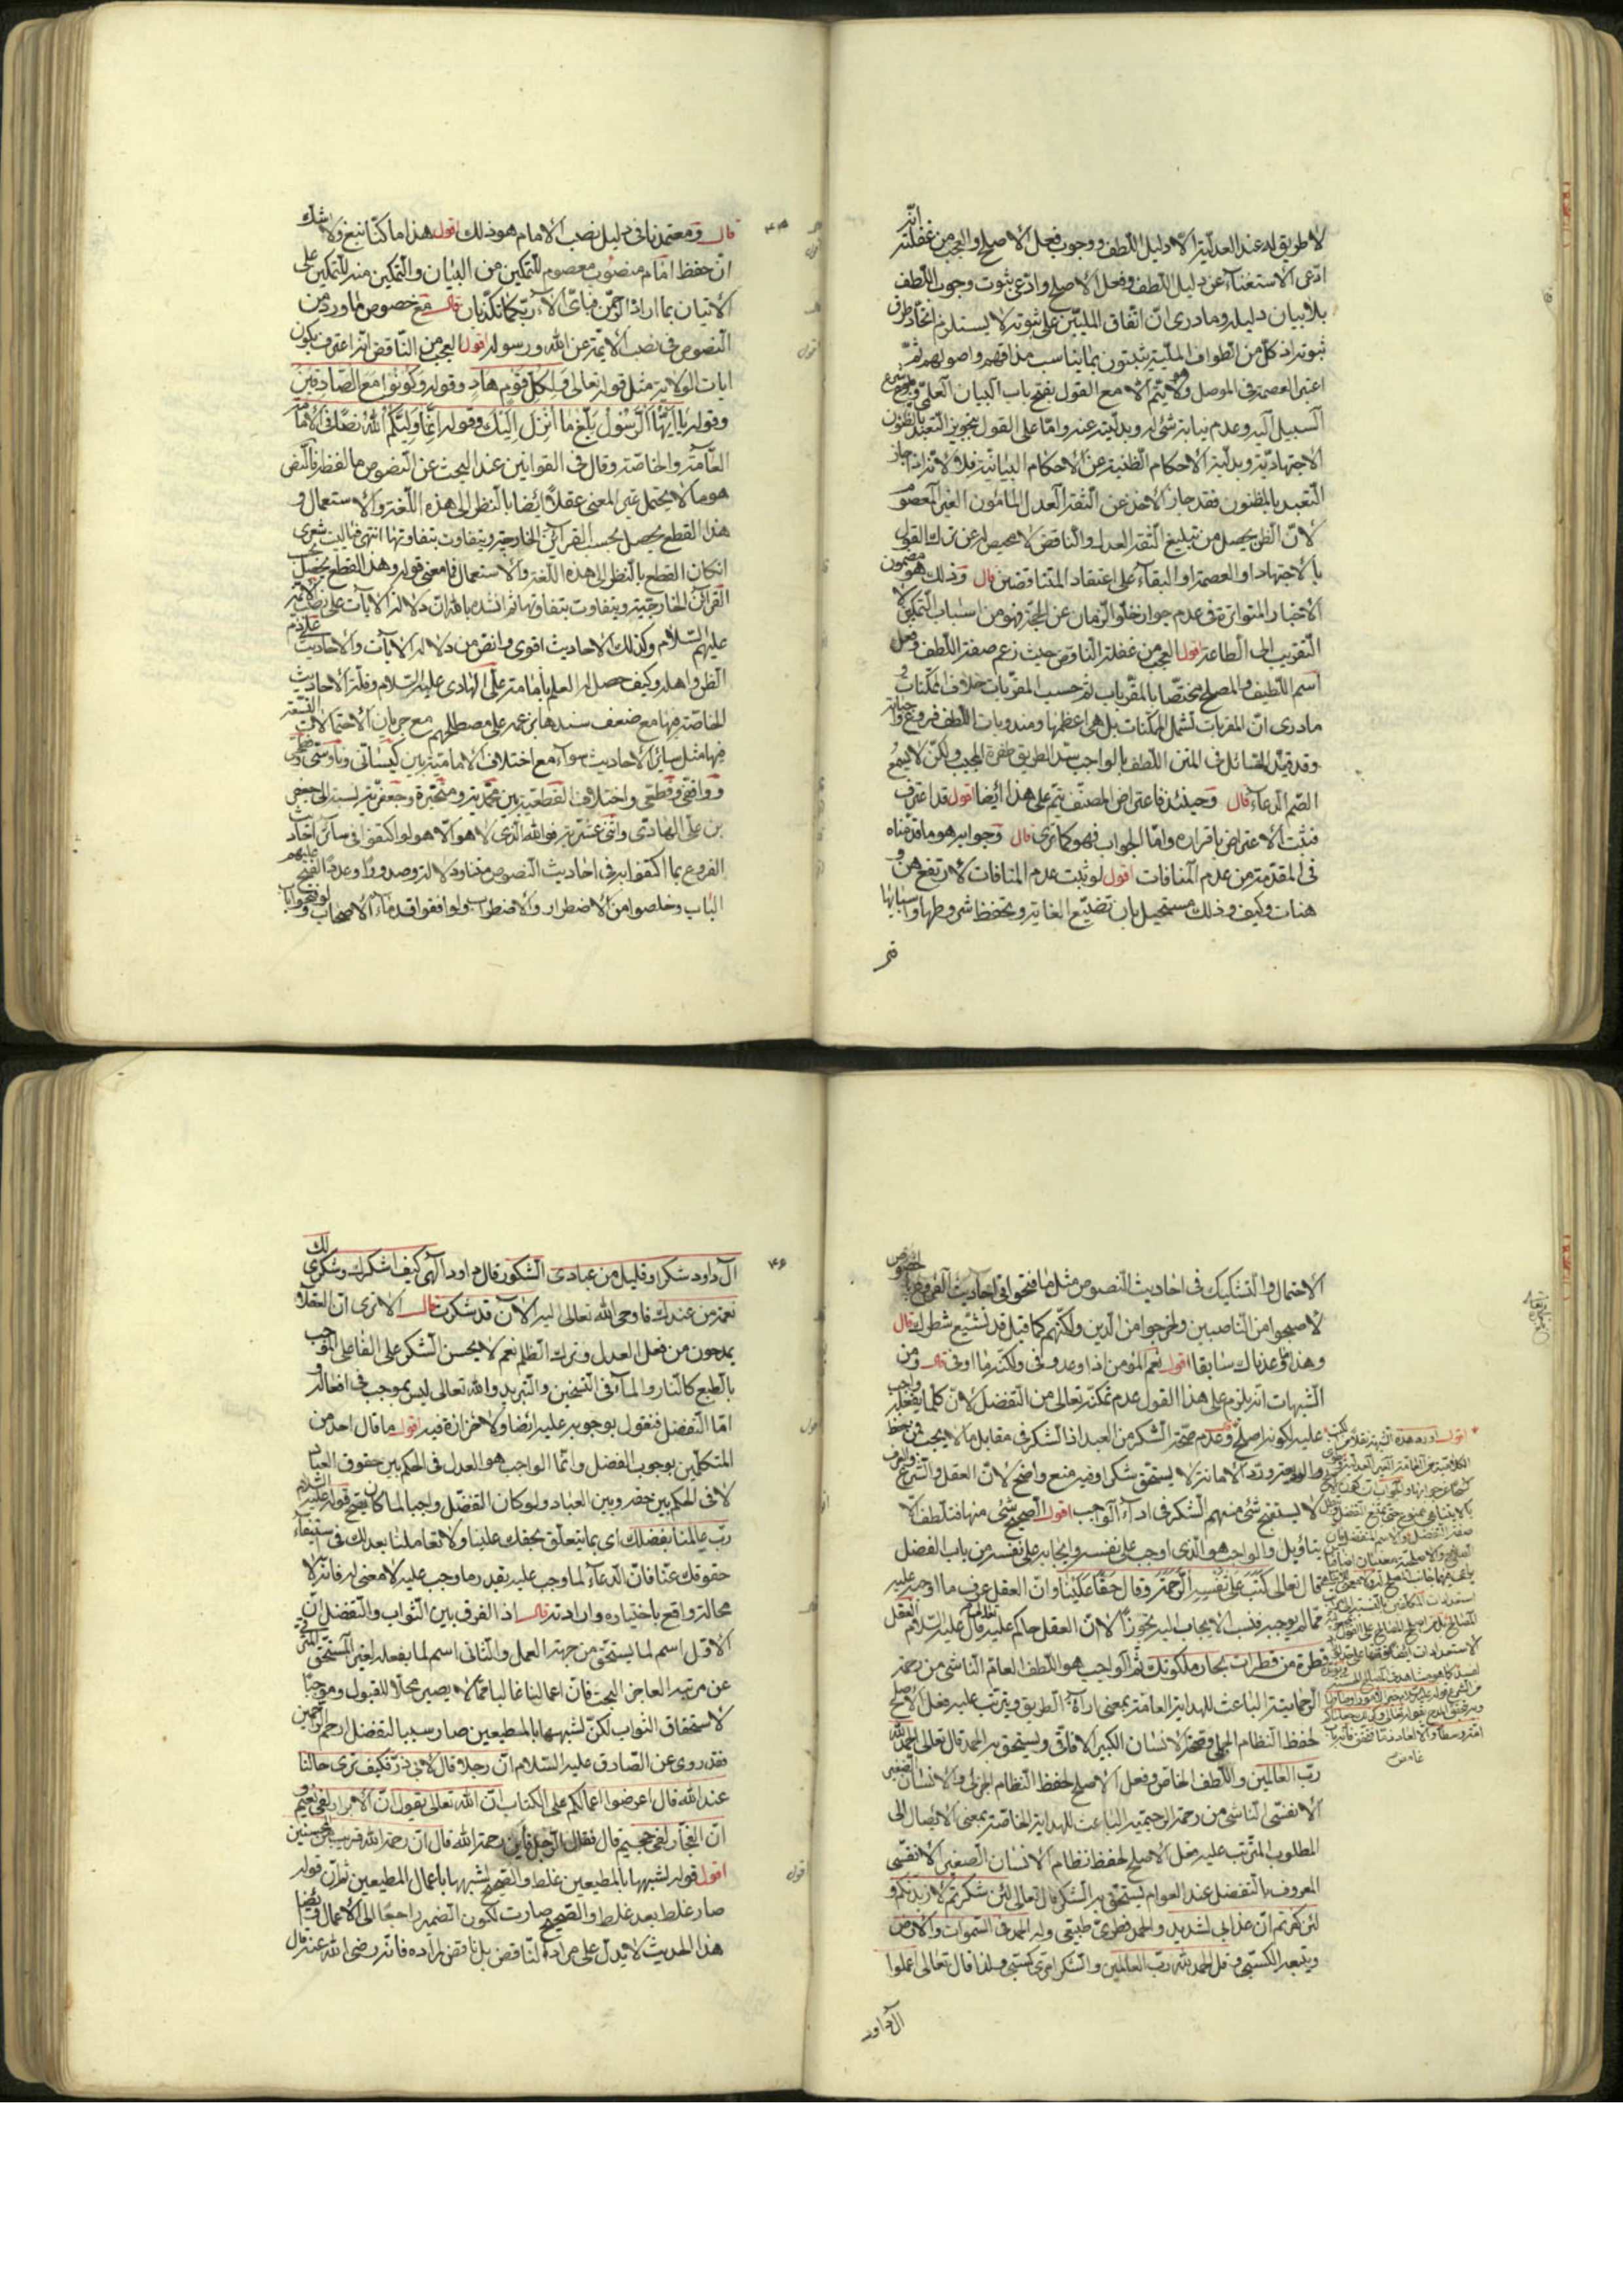 لا طريق له عند العدلية الا دليل اللطف ووجوب فعل الاصلح والعجب من غفلته انه
ادعى الاستغناء عن دليل اللطف وفعل الاصلح وادعى ثبوت وجوب اللطف
بلا بيان دليله وما درى ان اتفاق المليين على ثبوته لا يستلزم اتحاد طرق
ثبوته اذ كل من الطوائف الملية يثبتون بما يناسب مذاقهم واصولهم ثم
اعتبر العصمة في الموصل ولا يتم الا مع القول بفتح باب البيان العلمي
السبيل اليه وعدم نيابة شيء له وبدليته عنه واما على القول بتجويز التعبد بالظنون
الاجتهادية وبدلية الاحكام الظنية عن الاحكام البيانية فلا لانه اذا جاز
التعبد بالمظنون فقد جاز الاخذ عن الثقة العدل المامون الغير المعصوم
لان الظن يحصل من تبليغ الثقة العدل والناقض لا محيص له عن ترك القول
بالاجتهاد او العصمة او البقاء على اعتقاد المتناقضين قال وذلك هو مضمون
الاخبار المتواترة في عدم جواز خلو الزمان عن الحجة فهو من اسباب التمكين لا
التقريب الى الطاعة اقول العجب من غفلة الناقض حيث زعم صفة اللطف وجعل
اسم اللطيف والمصلح مختصا بالمقربات ثم حسب المقربات خلاف الممكنات و
ما درى ان المقربات تشمل الممكنات بل هي اعظمها ومندوبات اللطف فروع واجباته
وقد قيد القائل في المتن اللطف بالواجب سد الطريق طفرة المجيب ولكن لا يسمع
الصم الدعاء قال وحينئذ فاعتراض المصنف يتم على هذا ايضا اقول قد اعترف
فثبت الاعتراض باقراره واما الجواب فهو كما ترى قال وجوابه هو ما قدمناه
في المقدمة من عدم المنافات اقول لو ثبت عدم المنافات لارتفع هن و
هنات وكيف وذلك مستحيل بان تضيع الغاية ويحفظ شروطها واسبابها
قال ومعتمدنا في دليل نصب الامام هو ذلك اقول هذا ما كنا نبغ ولا شك
ان حفظ امام منصوب معصوم للتمكين من البيان والتمكين منه للتمكين على
الاتيان بما اراد الرحمن فباي الاء ربكما تكذبان قال مع خصوص ما ورد من
النصوص في نصب الائمة عن الله ورسوله اقول العجب من الناقض انه اعترف بكون
ايات الولاية مثل قوله تعالى ولكل قوم هاد وقوله وكونوا مع الصادقين
وقوله يا ايها الرسول بلغ ما انزل اليك وقوله انما وليكم الله نصا في الامامة
العامة والخاصة وقال في القوانين عند البحث عن النصوص ما لفظه فالنص
هو ما لا يحتمل غير المعنى عقلا ايضا بالنظر الى هذه اللغة والاستعمال و
هذا القطع يحصل بحسب القراين الخارجية ويتفاوت بتفاوتها انتهى فيا ليت شعري
ان كان القطع بالنظر الى هذه اللغة والاستعمال فما معنى قوله وهذا القطع يحصل بحسب
القراين الخارجية ويتفاوت بتفاوتها ثم انشده بالله ان دلالة الايات على نصب الائمة
عليهم السلام وكذلك الاحاديث اقوى وانقص من دلالة الايات والاحاديث على ذم
الظن واهله وكيف حصل له العلم بامامة علي الهادي عليه السلام وقلة الاحاديث
الخاصة فيها مع ضعف سندها بزعمه على مصطلحهم مع جريان الاحتمالات التسعة
فيها مثل سائر الاحاديث سواء مع اختلاف الامامية بين كيساني وناووسي وفطحي
وواقفي وقطعي واختلاف القطعية بين محمدية ومتحيرة وجعفرية نسبة الى جعفر
بن علي الهادي واثنى عشرية فوالله الذي لا هو الا هو لو اكتفوا في سائر احاديث
الفروع بما اكتفوا به في احاديث النصوص متنا ودلالة وصدورا وعددا لفتح عليهم
الباب وخلصوا من الاضطرار والاضطراب ولو وافقوا قدماء الاصحاب ولو فتحوا باب
الاحتمال والتشكيك في احاديث النصوص مثل ما فتحوا في احاديث
لاصبحوا من الناصبين ولخرجوا من الدين ولكنهم كما قيل قد تشيع شطرك قال
وهذا ما وعدناك سابقا اقول نعم المؤمن اذا وعد وفى ولكنه ما اوفى قال ومن
الشبهات انه يلزم على هذا القول عدم تمكنه تعالى من التفضل لان كلما يفعله واجب
عليه لكونه اصلح وعدم صحة الشكر من العبد اذ الشكر في مقابل ما لا يجب
ورد الامانة لا يستحق شكرا وفيه منع واضح لان العقل والشرع
لا يستقبح شيء منهم الشكر في اداء الواجب اقول الصحيح شيء منها فتلطف لا
يتاويل والواجب هو الذي اوجب على نفسه وايجابه على نفسه من باب الفضل
قال تعالى كتب على نفسه الرحمة وقال حقا علينا وان العقل عرف ما اوجبه عليه
مما لم يوجبه فنسب الايجاب اليه تجوزا لا ان العقل حاكم عليه قال عليه السلام العقل
قطرة من قطرات بحار ملكوتك ثم الواجب هو اللطف العام الناشي من رحمته
الرحمانية الباعث للهداية العامة بمعنى اراءة الطريق ويترتب عليه فعل الاصلح
لحفظ النظام الجملي وصحة الانسان الكبير الافاقي ويستحق به الحمد قال تعالى الحمد لله
رب العالمين واللطف الخاص وفعل الاصلح لحفظ النظام الجزئي والانسان الصغير
الانفسي الناشي من رحمته الرحيمية الباعث للهداية الخاصة بمعنى الايصال الى
المطلوب المترتب عليه فعل الاصلح لحفظ نظام الانسان الصغير الانفسي
المعروف بالتفضل عند العوام يستحق به الشكر قال تعالى لئن شكرتم لازيدنكم و
لئن كفرتم ان عذابي لشديد والحمد فطري طبيعي وله الحمد في السموات والارض
ويتبعه الكسبي وقل الحمد لله رب العالمين والشكر امري كسبي ولذا قال تعالى اعملوا
ال داود
ال داود شكرا وقليل من عبادي الشكور قال داود الهي كيف اشكرك وشكري لك
نعمة من عندك فاوحى الله تعالى اليه الان قد شكرت قال الا ترى ان العقلاء
يمدحون من فعل العدل وترك الظلم نعم لا يحسن الشكر على الفاعل الموجب
بالطبع كالنار والماء في التسخين والتبريد والله تعالى ليس بموجب في افعاله و
اما التفضل فنقول بوجوبه عليه ايضا ولا حزازة فيه اقول ما قال احد من
المتكلمين بوجوب الفضل وانما الواجب هو العدل في الحكم بين حقوق العباد
لا في الحكم بين حضرته وبين العباد ولو كان التفضل واجبا لما كان يصح قوله عليه السلام
رب عاملنا بفضلك اي بما يتعلق بحقك علينا ولا تعاملنا بعدلك في استيفاء
حقوقك عنا فان الدعاء لما وجب عليه بقدر ما وجب عليه لا معنى له فانه لا
محالة واقع باختياره وارادته قال اذ الفرق بين الثواب والتفضل ان
الاول اسم لما يستحق من جهة العمل والثاني اسم لما يفعله لغير المستحق
عن مرتبة العاجز البحت فان اعمالنا غالبا مما لا يصير محلا للقبول وموجبا
لاستحقاق الثواب لكن لشبهها بالمطيعين صار سببا لتفضل ارحم الراحمين
فقد روي عن الصادق عليه السلام ان رجلا قال لابي ذر فكيف ترى حالنا
عند الله قال اعرضوا اعمالكم على الكتاب ان الله تعالى يقول ان الابرار لفي نعيم و
ان الفجار لفي جحيم قال فقال الرجل فاين رحمة الله قال ان رحمة الله قريب من المحسنين
اقول قوله لشبهها بالمطيعين غلط والصحيح لشبهها باعمال المطيعين ثم ان قوله
صار غلط بعد غلط والصحيح صارت لكون الضمير راجعا الى الاعمال وايضا
هذا الحديث لا يدل على مراد الناقض بل ناقض مراده فانه رضي الله عنه قال